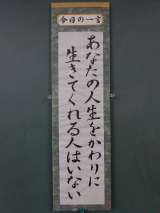 今日の一言
あなたの人生をかわりに
生きてくれる人はいない